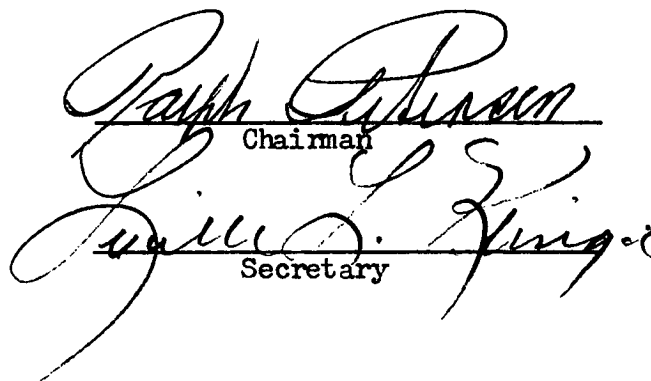 Ralph Petersen
Chairman
Lucille L.
Secretary